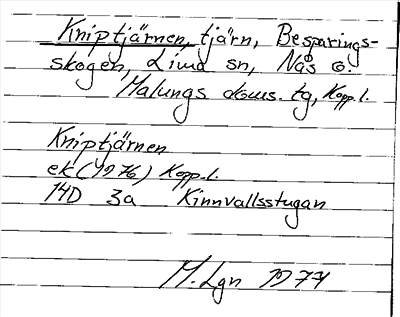 Kniptjärnen, tjärn, Besparings-
skogen, Lima sn, Nås o.
Malungs doms. tg, Kopp. l.
Kniptjärnen
ek (1976) Kopp. l.
14D 3a Kinnvallsstugan
M. Lgn 1977